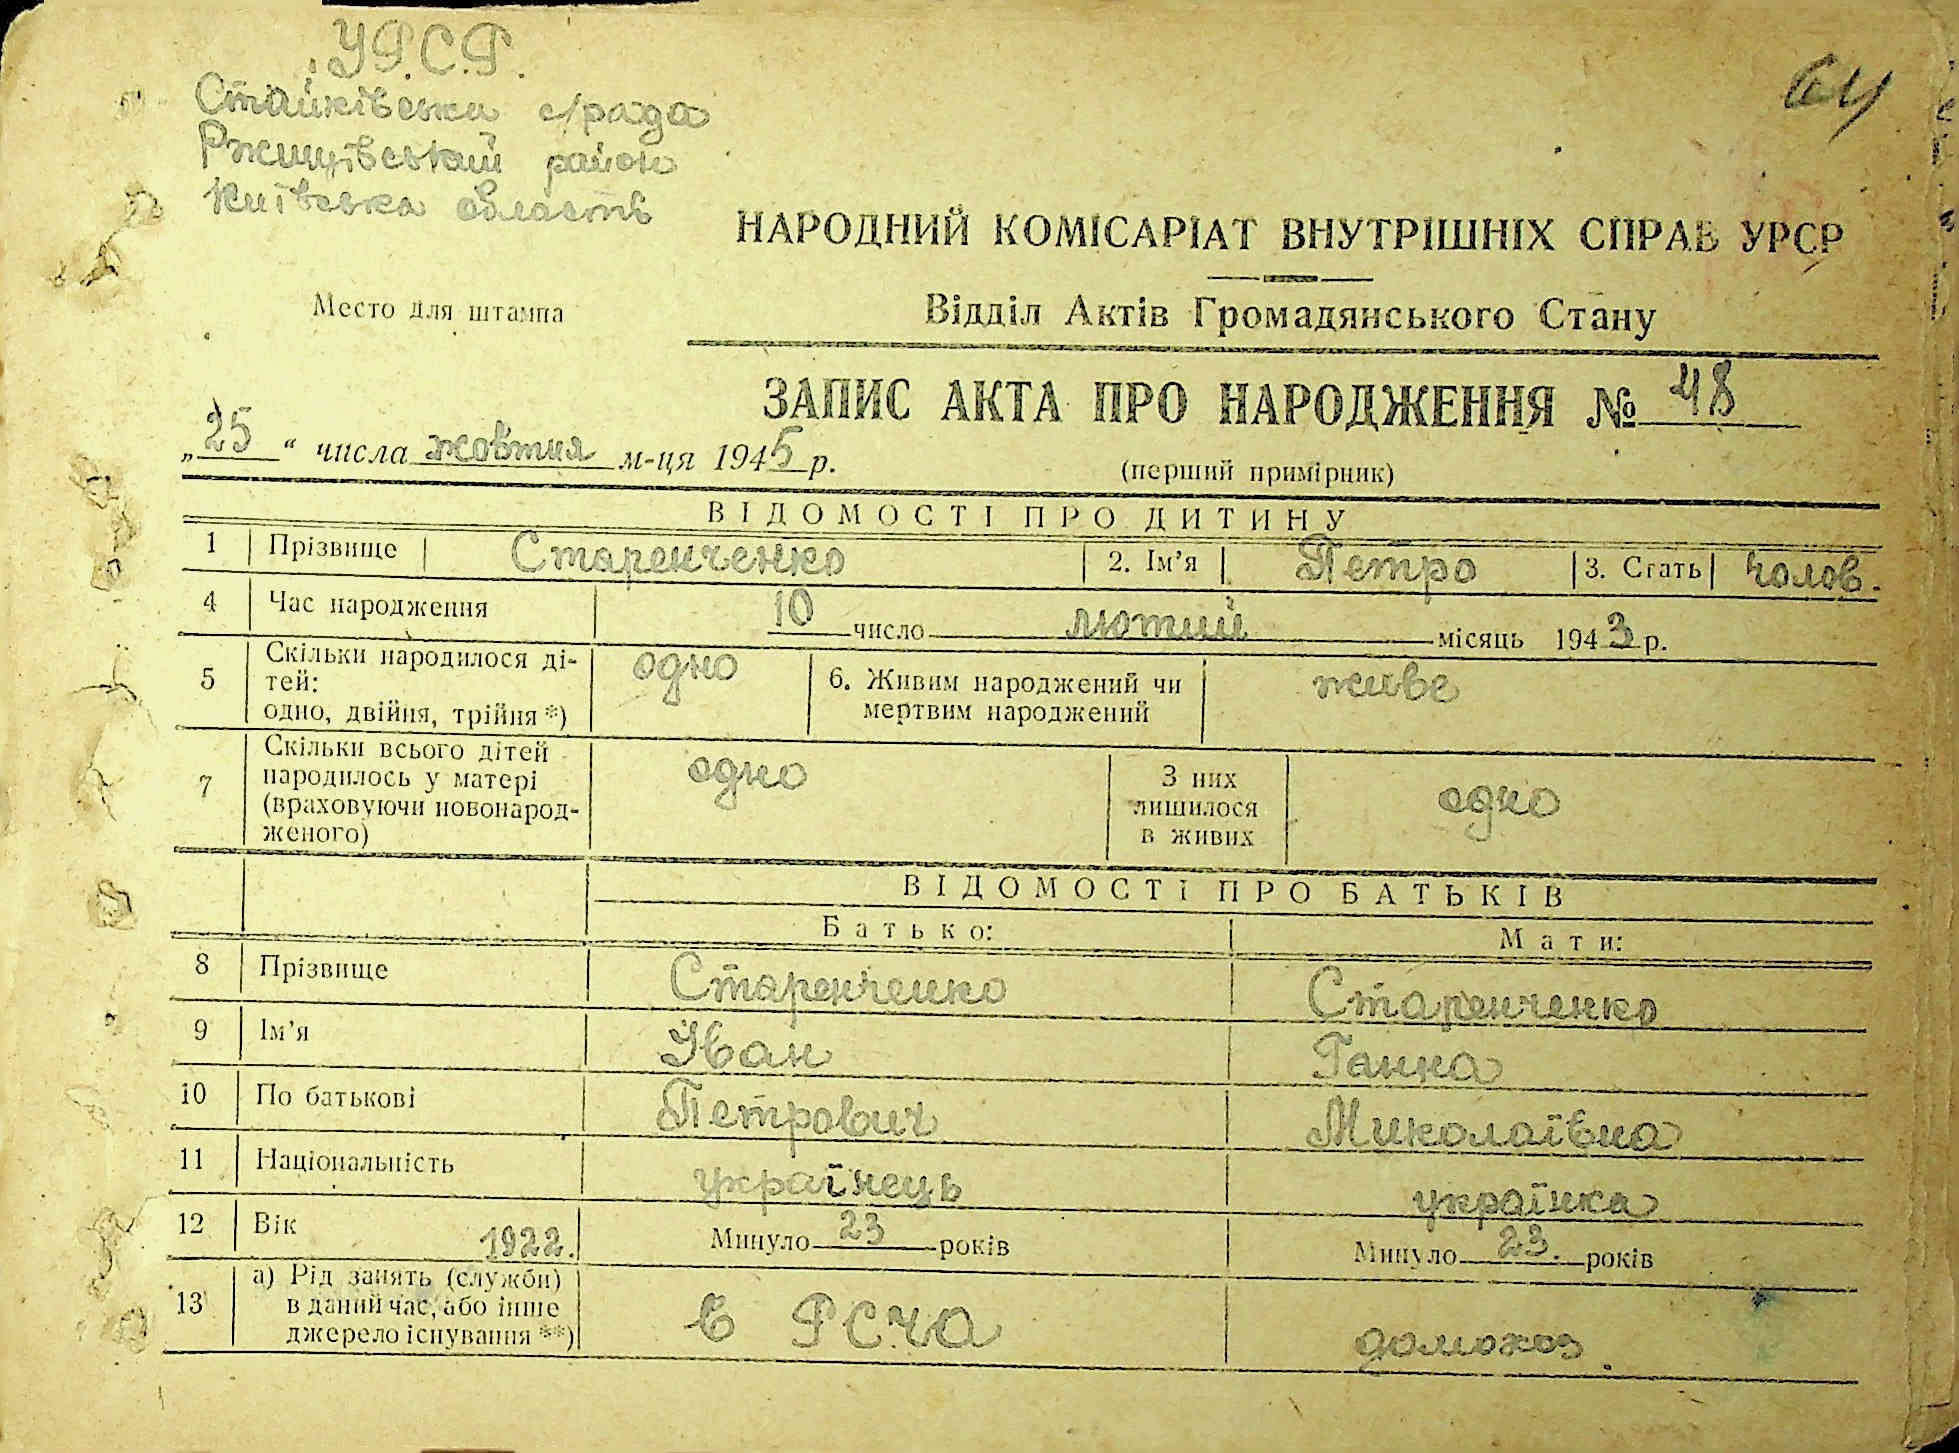 У.Р.С.Р.
64
Стайківська с/рада
Ржищівський район
Київська область
НАРОДНИЙ КОМІСАРІАТ ВНУТРІШНІХ СПРАВ УРСР
Место для штампа
Відділ Актів Громадянського Стану
ЗАПИС АКТА ПРО НАРОДЖЕННЯ № 48
„25“ числа жовтня м-ця 1945 р.
(перший примірник)
ВІДОМОСТІ ПРО ДИТИНУ
1 Прізвище Старенченко 2. Ім’я Петро 3. Стать чолов.
4 Час народження 10 число лютий місяць 1943 р.
5 Скільки народилося ді-
тей:
одно, двійня, трійня *) одно 6. Живим народжений чи
мертвим народжений живе
7 Скільки всього дітей
народилось у матері
(враховуючи новонарод-
женого) одно З них
лишилося
в живих одно
ВІДОМОСТІ ПРО БАТЬКІВ
Батько: Мати:
8 Прізвище Старенченко Старенченко
9 Ім’я Іван Ганна
10 По батькові Петрович Миколаївна
11 Національність українець українка
12 Вік 1922. Минуло 23 років Минуло 23. років
13 а) Рід занять (служби)
в даний час, або інше
джерело існування **) в РСЧА домохоз.